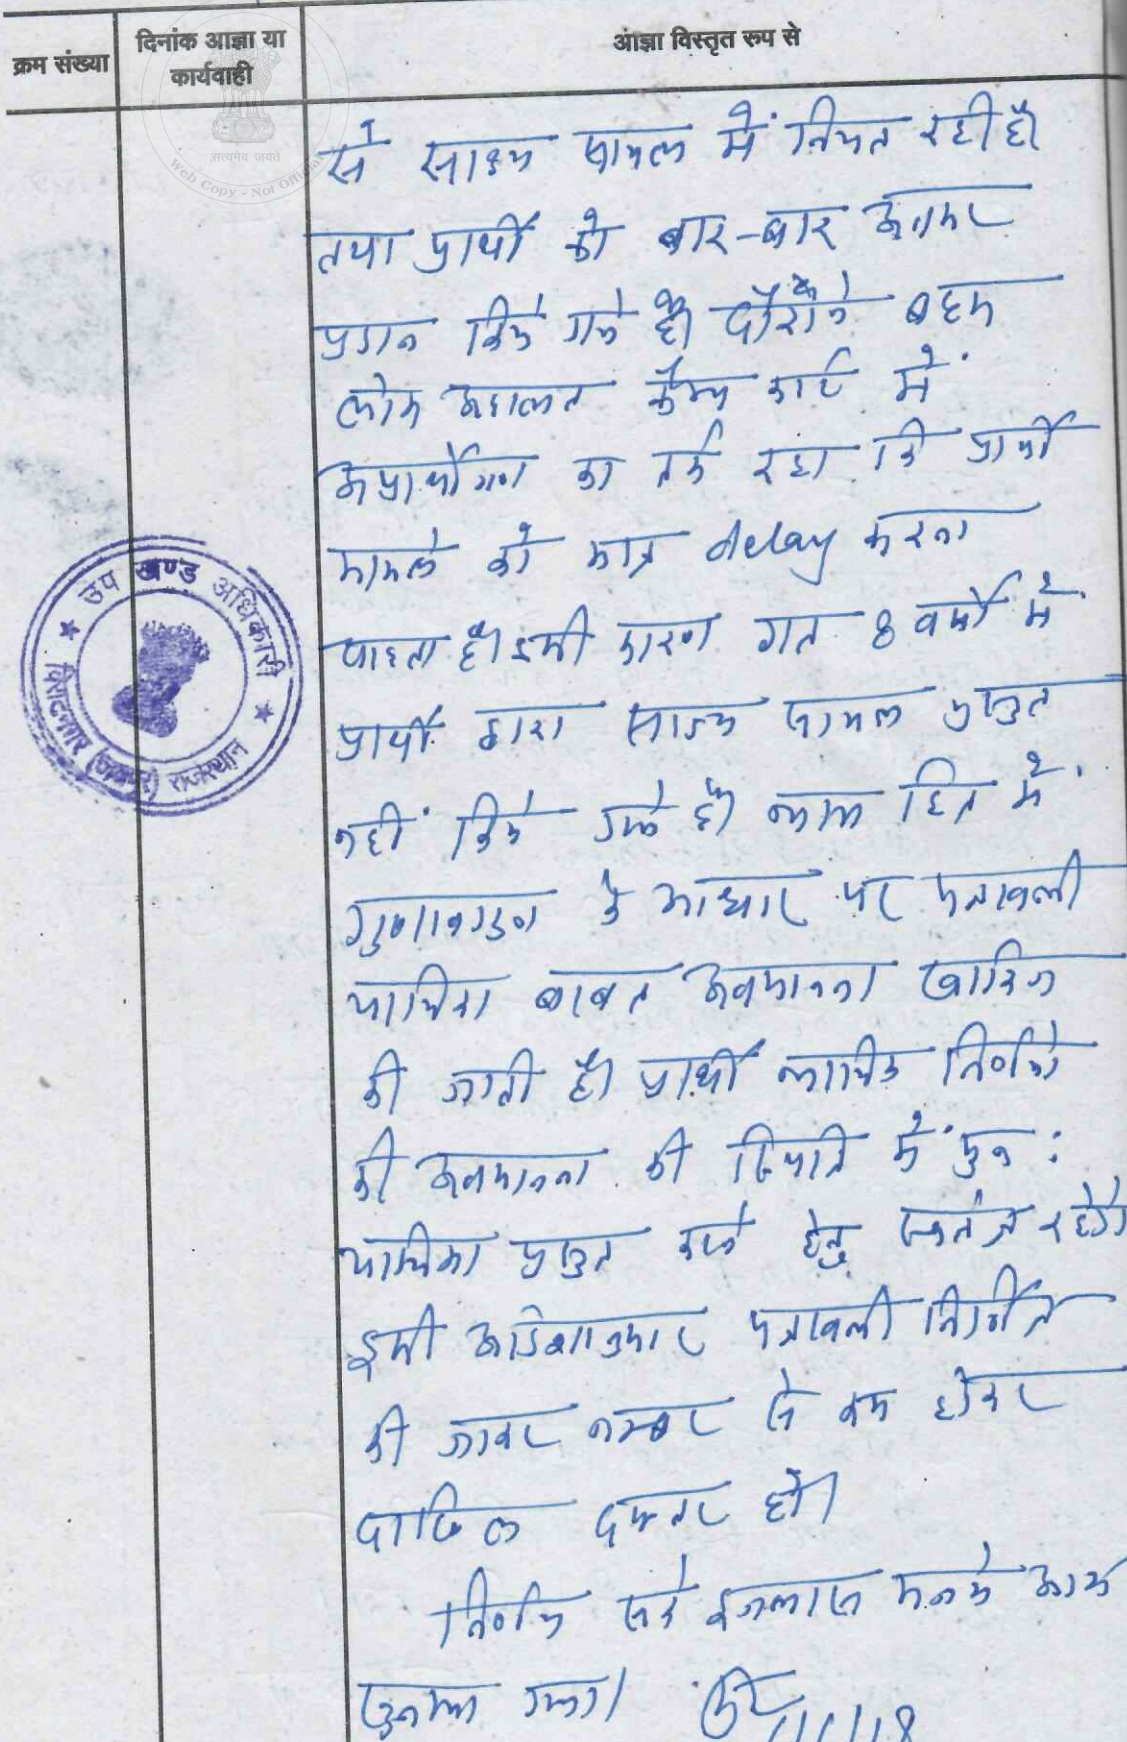 क्रम संख्या
दिनांक आज्ञा या
कार्यवाही
आज्ञा विस्तृत रूप से
सत्यमेव जयते
Web Copy - Not Official
से साक्ष्य प्रार्थी में नियत रही है।
तथा प्रार्थी को बार-बार अवसर
प्रदान किये गये है। दौराने बहस
लोक अदालत कैम्प कोर्ट में
अप्रार्थीगण का तर्क रहा कि प्रार्थी
मामले को मात्र delay करना
चाहता है। इसी कारण गत 8 वर्षों में
प्रार्थी द्वारा साक्ष्य प्रस्तुत
नहीं किये गये है। न्याय हित में
गुणावगुण के आधार पर पत्रावली
याचिका बाबत अवमानना खारिज
की जाती है। प्रार्थी न्यायिक निर्णयो
की अवमानना की स्थिति में पुन:
याचिका प्रस्तुत करने हेतु स्वतंत्र रहेगे।
इसी आदेशानुसार पत्रावली निर्णित
की जाकर नम्बर से कम होकर
दाखिल दफ्तर हो।
निर्णय सरे इजलास मनके आम
सुनाया गया।
उप खण्ड अधिकारी
विराटनगर (जयपुर) राजस्थान